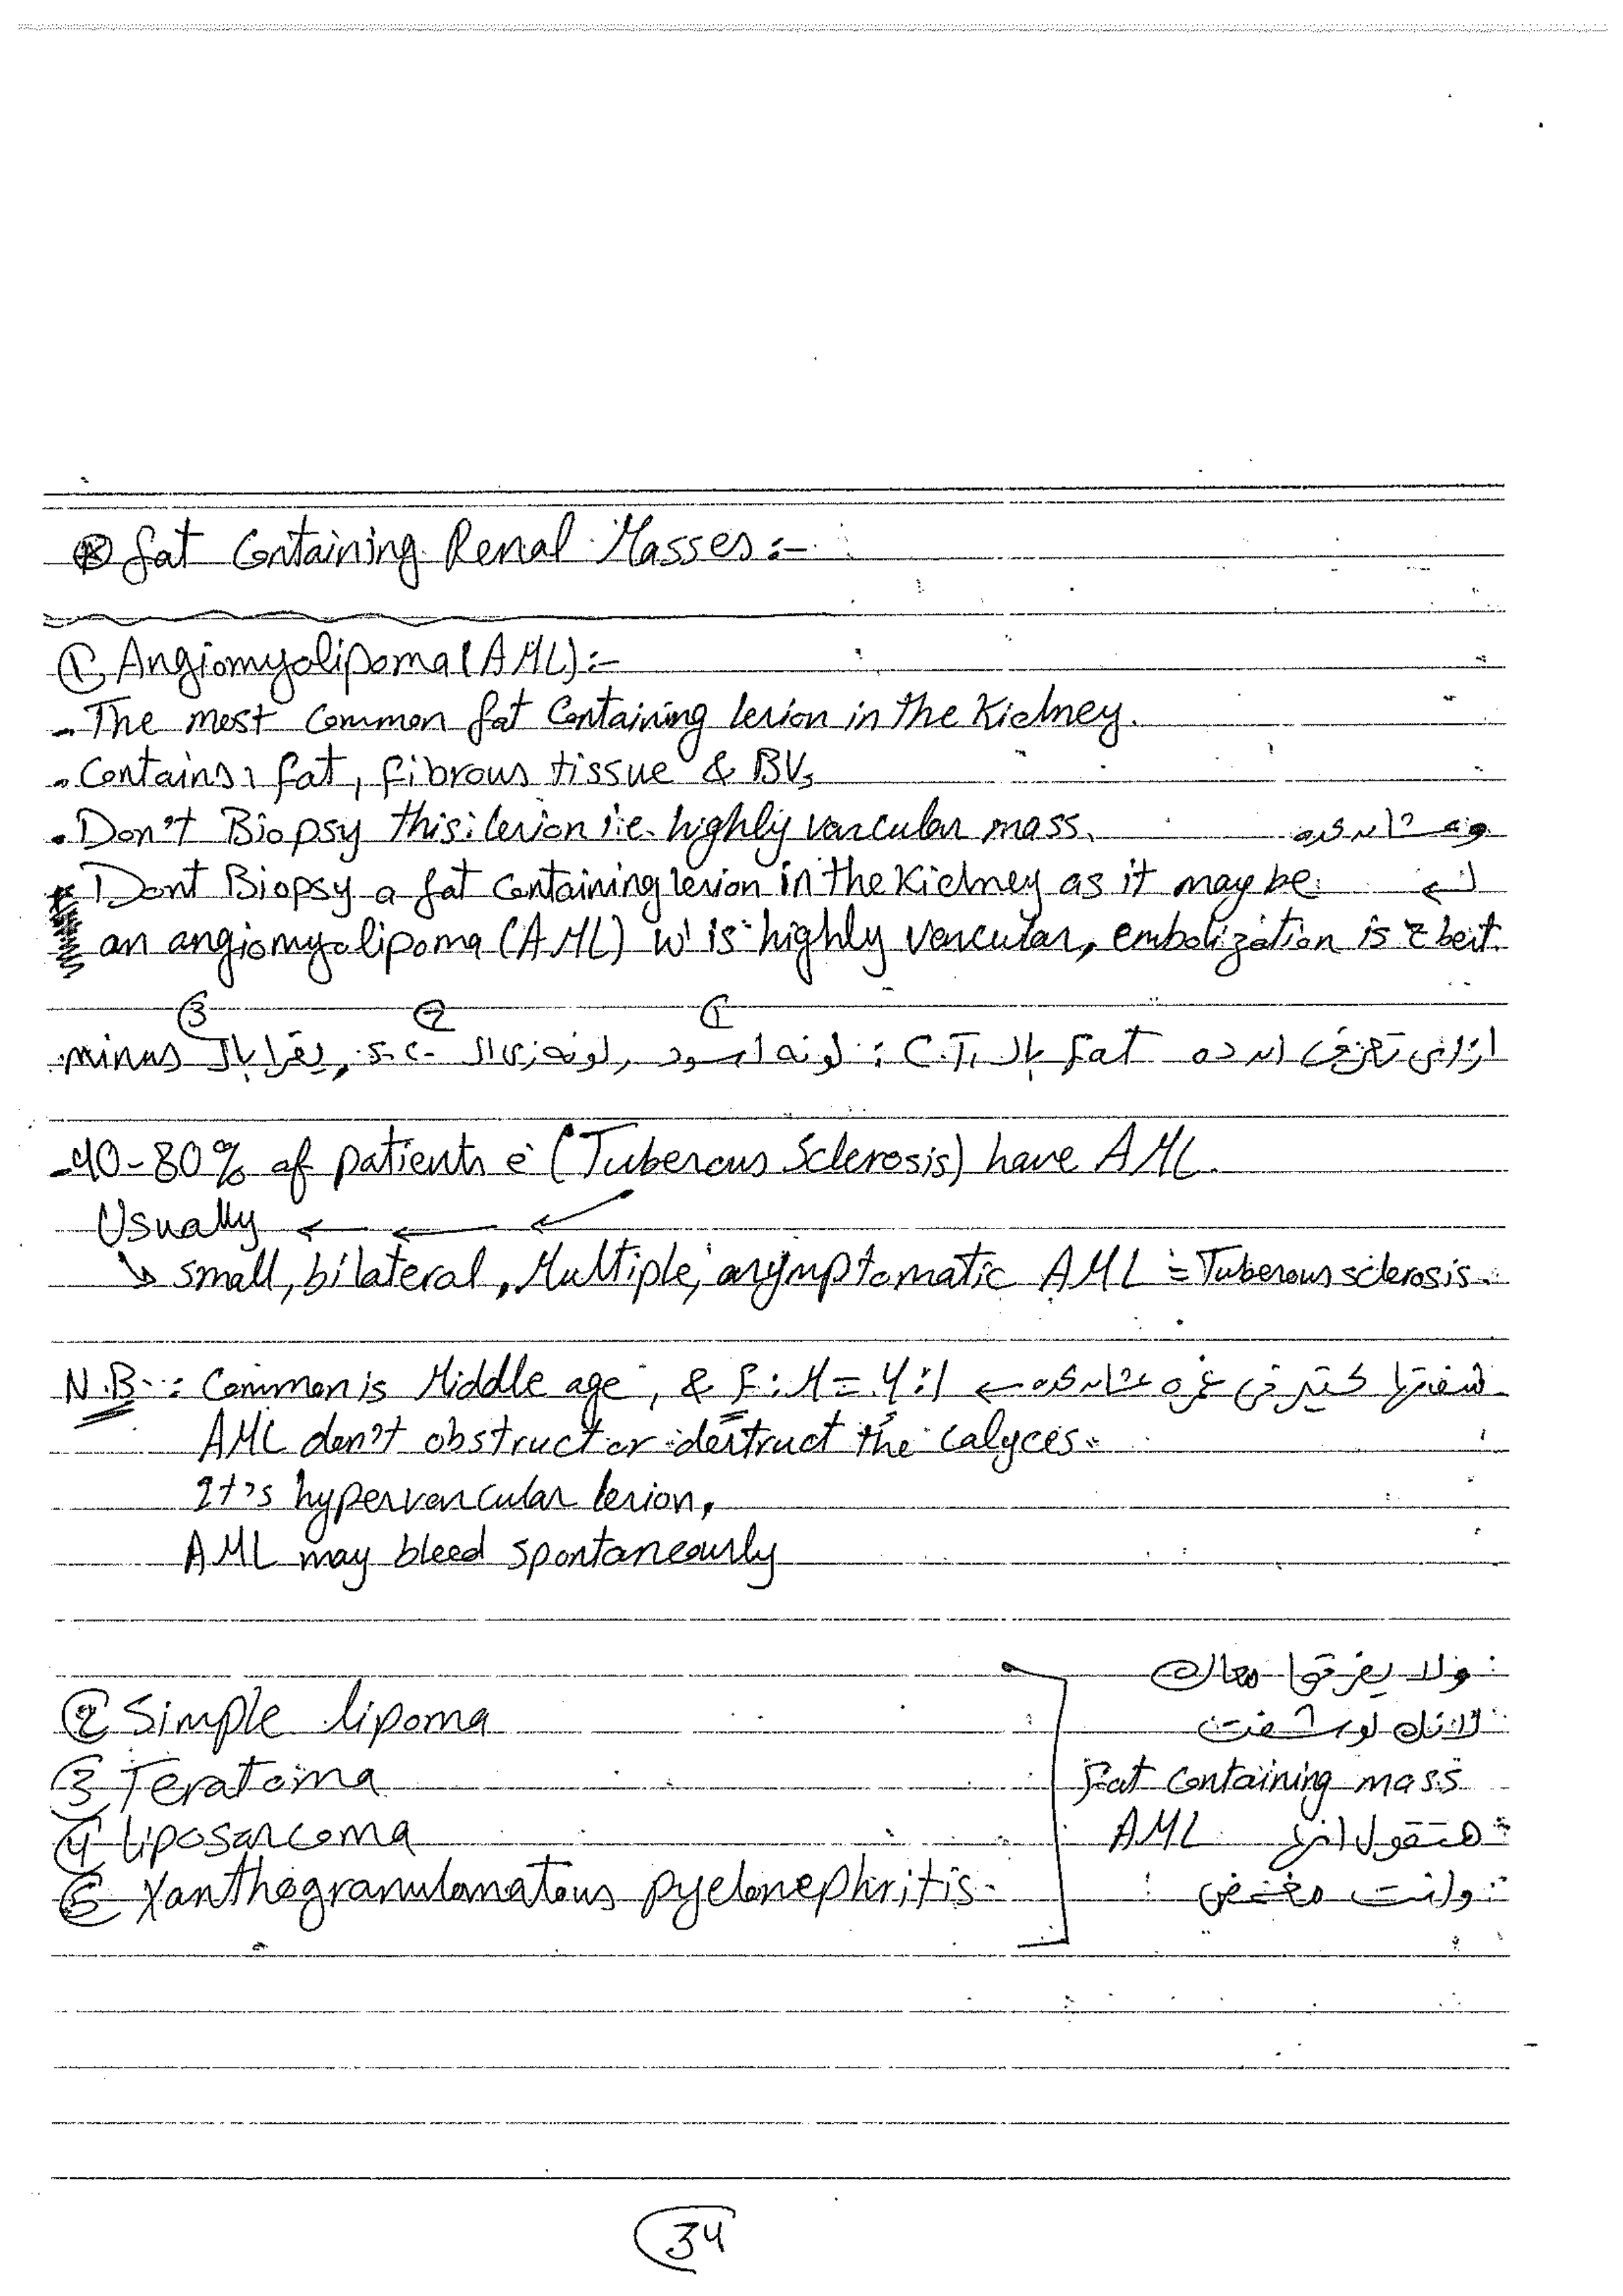 ⊛ fat Containing Renal Masses:-
① Angiomyolipoma (AML):-
- The most common fat Containing lesion in the Kidney.
- Contains: fat, fibrous tissue & BVs
- Don't Biopsy this lesion i.e. highly vascular mass. وعشان كده
Dont Biopsy a fat containing lesion in the Kidney as it may be
an angiomyolipoma (AML) w' is highly vascular, embolization is τ best.
① ② ③
ازاي تعرف ان ده fat بال C.T. : لونه اسود, لونه زي ال s.c., يقرا بال minus
- 40-80% of patients ē (Tuberous Sclerosis) have AML.
Usually ← ← ←
↳ small, bilateral, Multiple, asymptomatic AML = Tuberous sclerosis.
N.B. : Common is Middle age, & F:M = 4:1 ← شفتها كتير في عشان كده
AML don't obstruct or destruct the calyces.
It's hypervascular lesion,
AML may bleed spontaneously
ولا يفرقوا معاك
② Simple lipoma لانك لو شفت
③ Teratoma Fat containing mass
④ liposarcoma هتقول انها AML
⑤ Xanthogranulomatous pyelonephritis. وانت مغمض
34